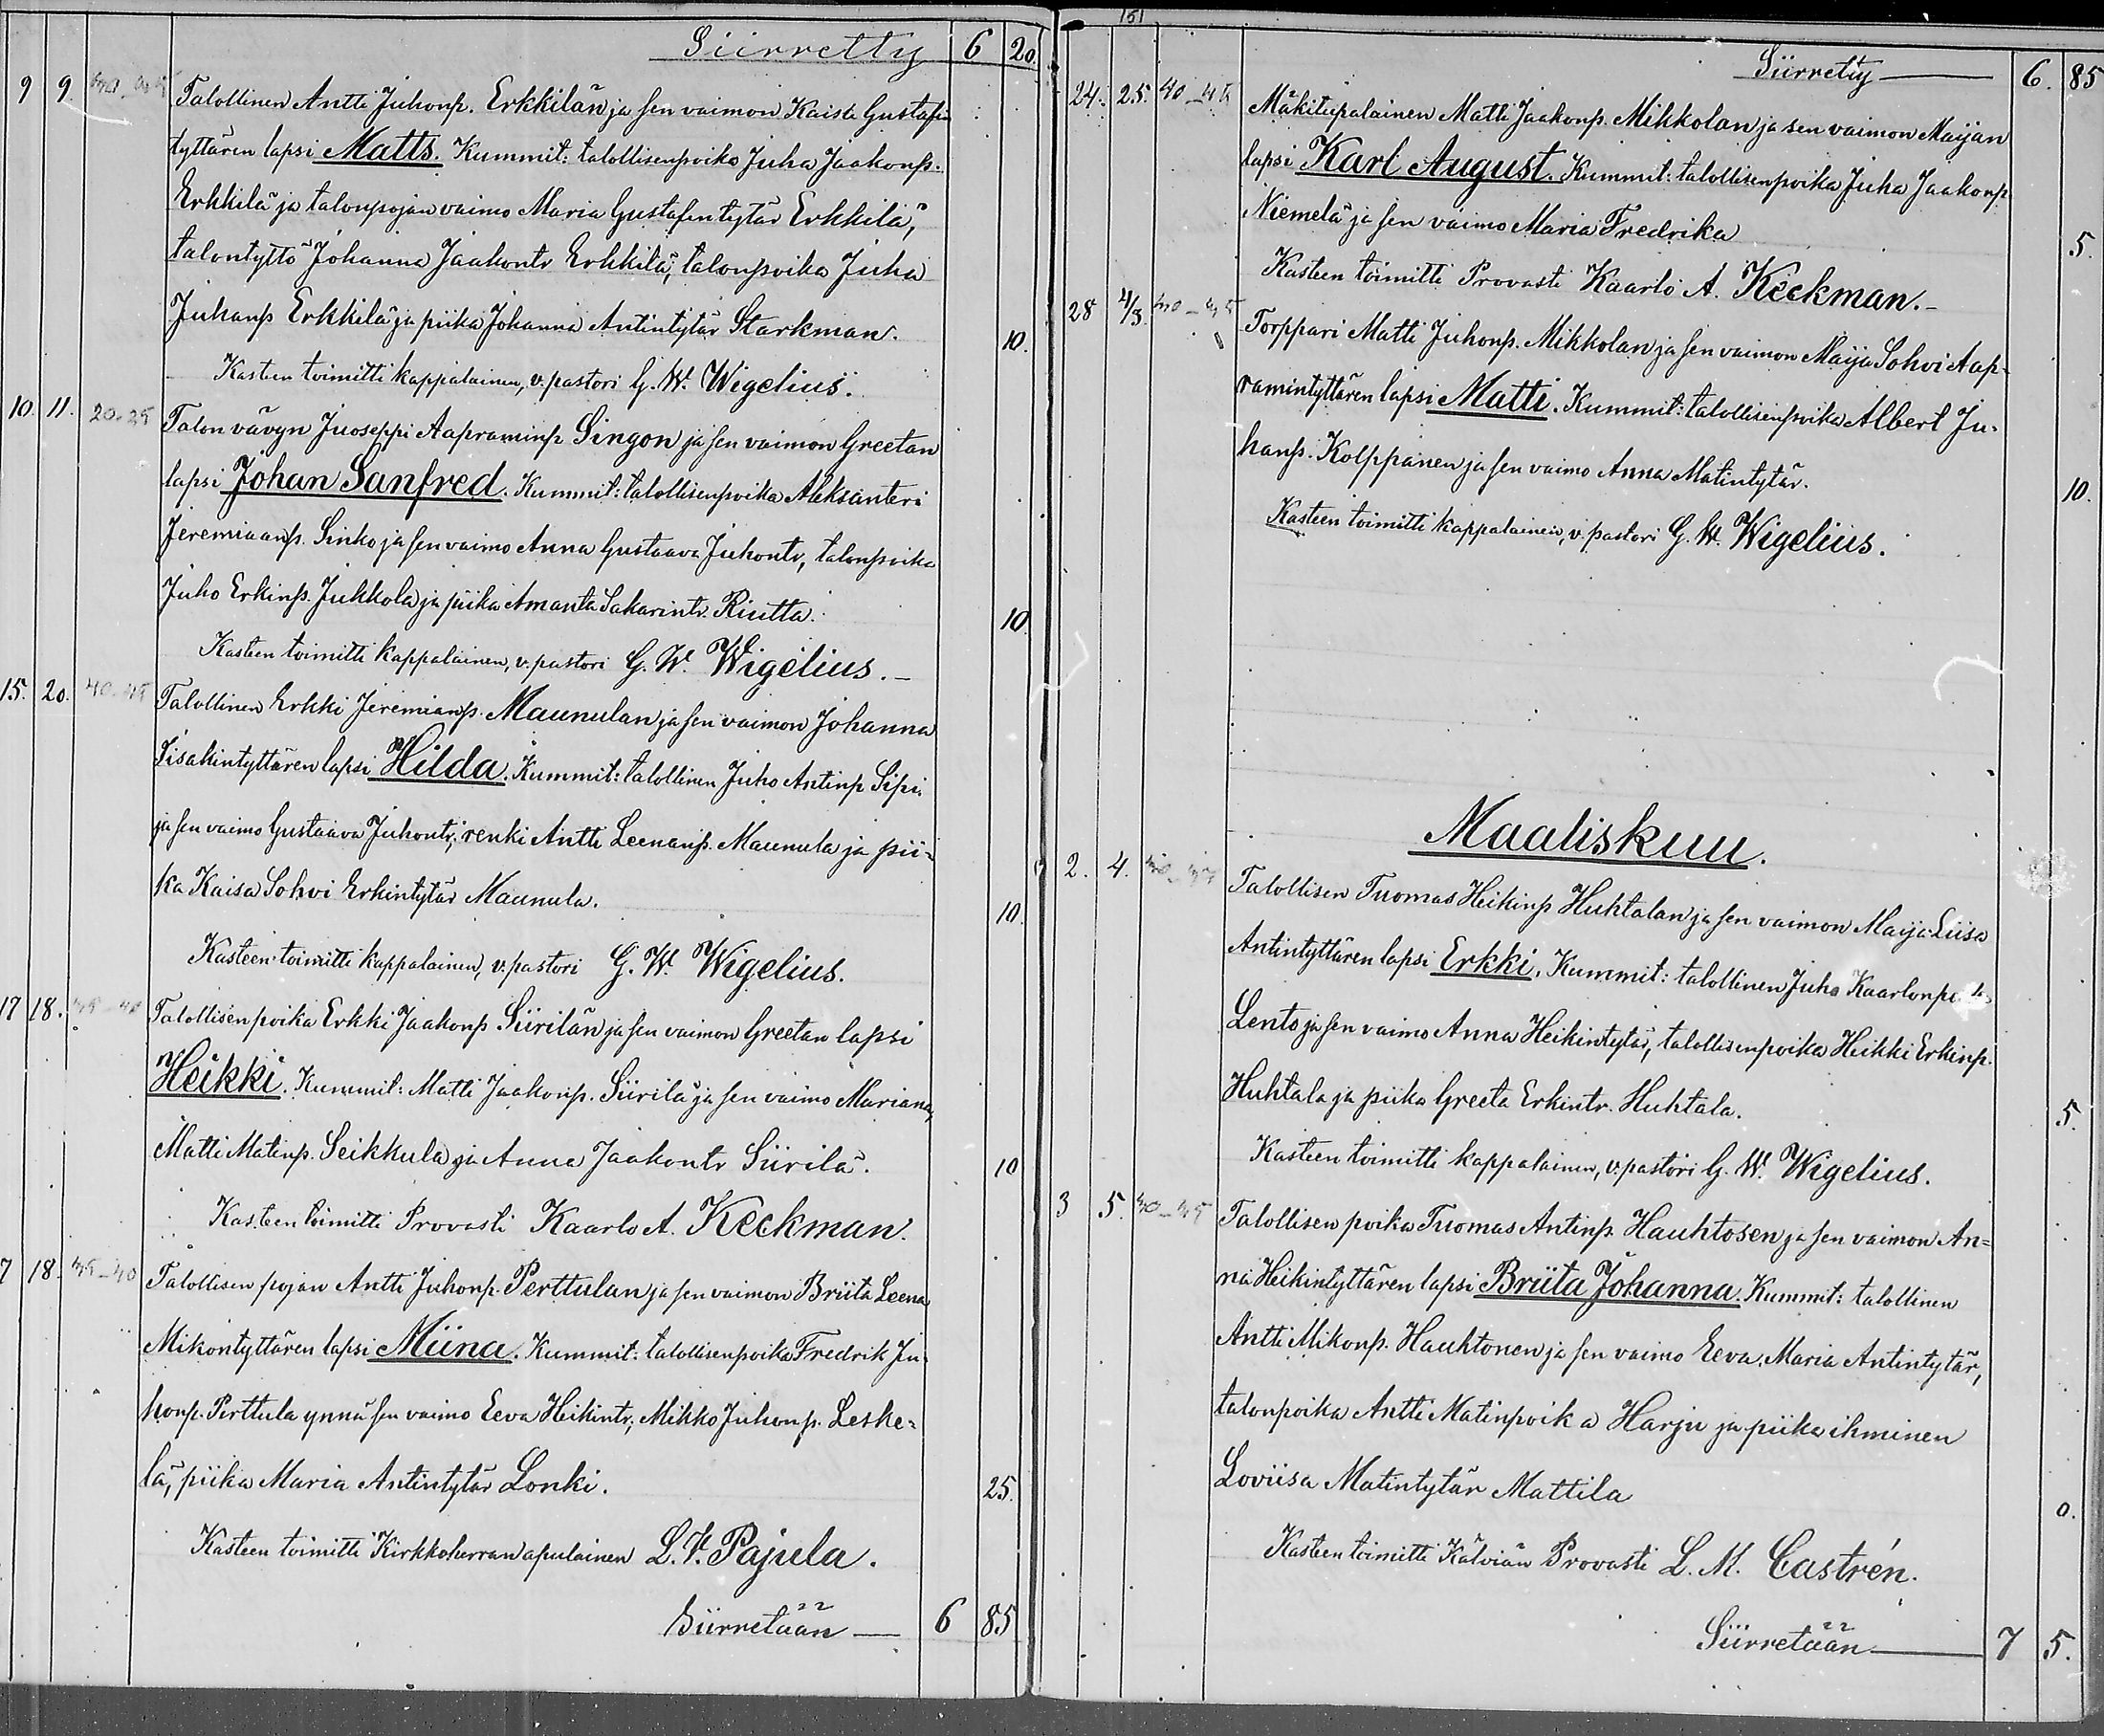 Siirretty 6 20.
9 9. Talollinen Antti Juhonp. Erkkilän ja sen vaimon Kaisa Gustafin
tyttären lapsi Matts. Kummit: talollisenpoika Juha Jaakonp.
Erkkilä ja talonpojan vaimo Maria Gustafintytär Erkkilä,
talontyttö Johanna Jaakontr Erkkilä, talonpoika Juha
Juhanp Erkkilä ja piika Johanna Antintytär Starkman. 10.
Kasteen toimitti kappalainen, v. pastori G. W. Wigelius.
10. 11. 20-25 Talon vävyn Juoseppi Aapraminp Singon ja sen vaimon Greetan
lapsi Johan Sanfred. Kummit: talollisenpoika Aleksanteri
Jeremiaanp. Sinko ja sen vaimo Anna Gustaava Juhontr, talonpoika
Juho Erkinp. Jukkola ja piika Amanta Sakarintr. Riutta. 10.
Kasteen toimitti kappalainen, v. pastori G. W. Wigelius.-
15. 20. 40-45 Talollinen Erkki Jeremianp. Maunulan ja sen vaimon Johanna
Iisakintyttären lapsi Hilda. Kummit: talollinen Juho Antinp Sipi
ja sen vaimo Gustaava Juhontr, renki Antti Leenanp. Maunula ja pii-
ka Kaisa Sohvi Erkintytär Maunula. 10.
Kasteen toimitti kappalainen, v. pastori G. W. Wigelius.
17 18. Talollisen poika Erkki Jaakonp Siirilän ja sen vaimon Greetan lapsi
Heikki. Kummit: Matti Jaakonp. Siirilä ja sen vaimo Mariana,
Matti Matinp. Seikkula ja Anna Jaakontr Siirilä. 10
Kasteen toimitti Provasti Kaarlo A. Keckman.
7 18. 35-40 Talollisen pojan Antti Juhonp. Perttulan ja sen vaimon Briita Leena
Mikontyttären lapsi Miina. Kummit: talollisenpoika Fredrik Ju-
honp. Perttula ynnä sen vaimo Eeva Heikintr, Mikko Juhonp. Leske=
lä, piika Maria Antintytär Lonki. 25.
Kasteen toimitti Kirkkoherran apulainen L. V. Pajula.
Siirretään — 6 85
151
Siirretty — 6. 85
24. 25. 40-45 Mäkitupalainen Matti Jaakonp. Mikkolan ja sen vaimon Maijan
lapsi Karl August. Kummit: talollisenpoika Juha Jaakonp
Niemelä ja sen vaimo Maria Fredrika 5.
Kasteen toimitti Provasti Kaarlo A. Keckman.-
28 4/3 Torppari Matti Juhonp. Mikkolan ja sen vaimon Maija Sohvi Aap-
ramintyttären lapsi Matti. Kummit: talollisenpoika Albert Ju-
hanp. Kolppanen ja sen vaimo Anna Matintytär. 10.
Kasteen toimitti kappalainen, v. pastori G. W. Wigelius.
Maaliskuu.
2. 4. Talollisen Tuomas Heikinp Huhtalan ja sen vaimon Maija Liisa
Antintyttären lapsi Erkki, Kummit: talollinen Juho
Lento ja sen vaimo Anna Heikintytär, talollisenpoika Heikki Erkinp.
Huhtala ja piika Greeta Erkintr. Huhtala. 5.
Kasteen toimitti kappalainen, v. pastori G. W. Wigelius.
3 5. 40-45 Talollisen poika Tuomas Antinp. Hauhtosen ja sen vaimon An=
na Heikintyttären lapsi Briita Johanna. Kummit: talollinen
Antti Mikonp. Hauhtonen ja sen vaimo Eeva Maria Antintytär,
talonpoika Antti Matinpoika Harju ja piika ihminen
Loviisa Matintytär Mattila 0.
Kasteen toimitti Kälviän Provasti L. M. Castrén.
Siirretään — 7 5.